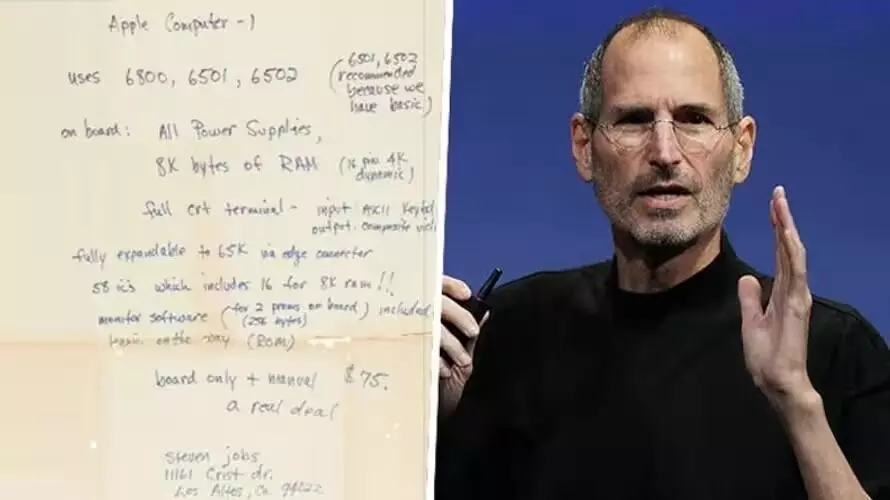 Apple Computer-1
uses 6800, 6501, 6502 (6501, 6502
recommended
because we
have basic)
on board: All Power Supplies,
8K bytes of RAM (16 pin 4K
dynamic)
full crt terminal - input ASCII
output: composite
fully expandable to 65K via edge connector
58 ic's which includes 16 for 8K ram!!
monitor software (for 2 proms on board) included
(256 bytes)
basic on the way (ROM)
board only + manual $75.
a real deal
Steven jobs
11161 Crist dr.
Los Altos, Ca.